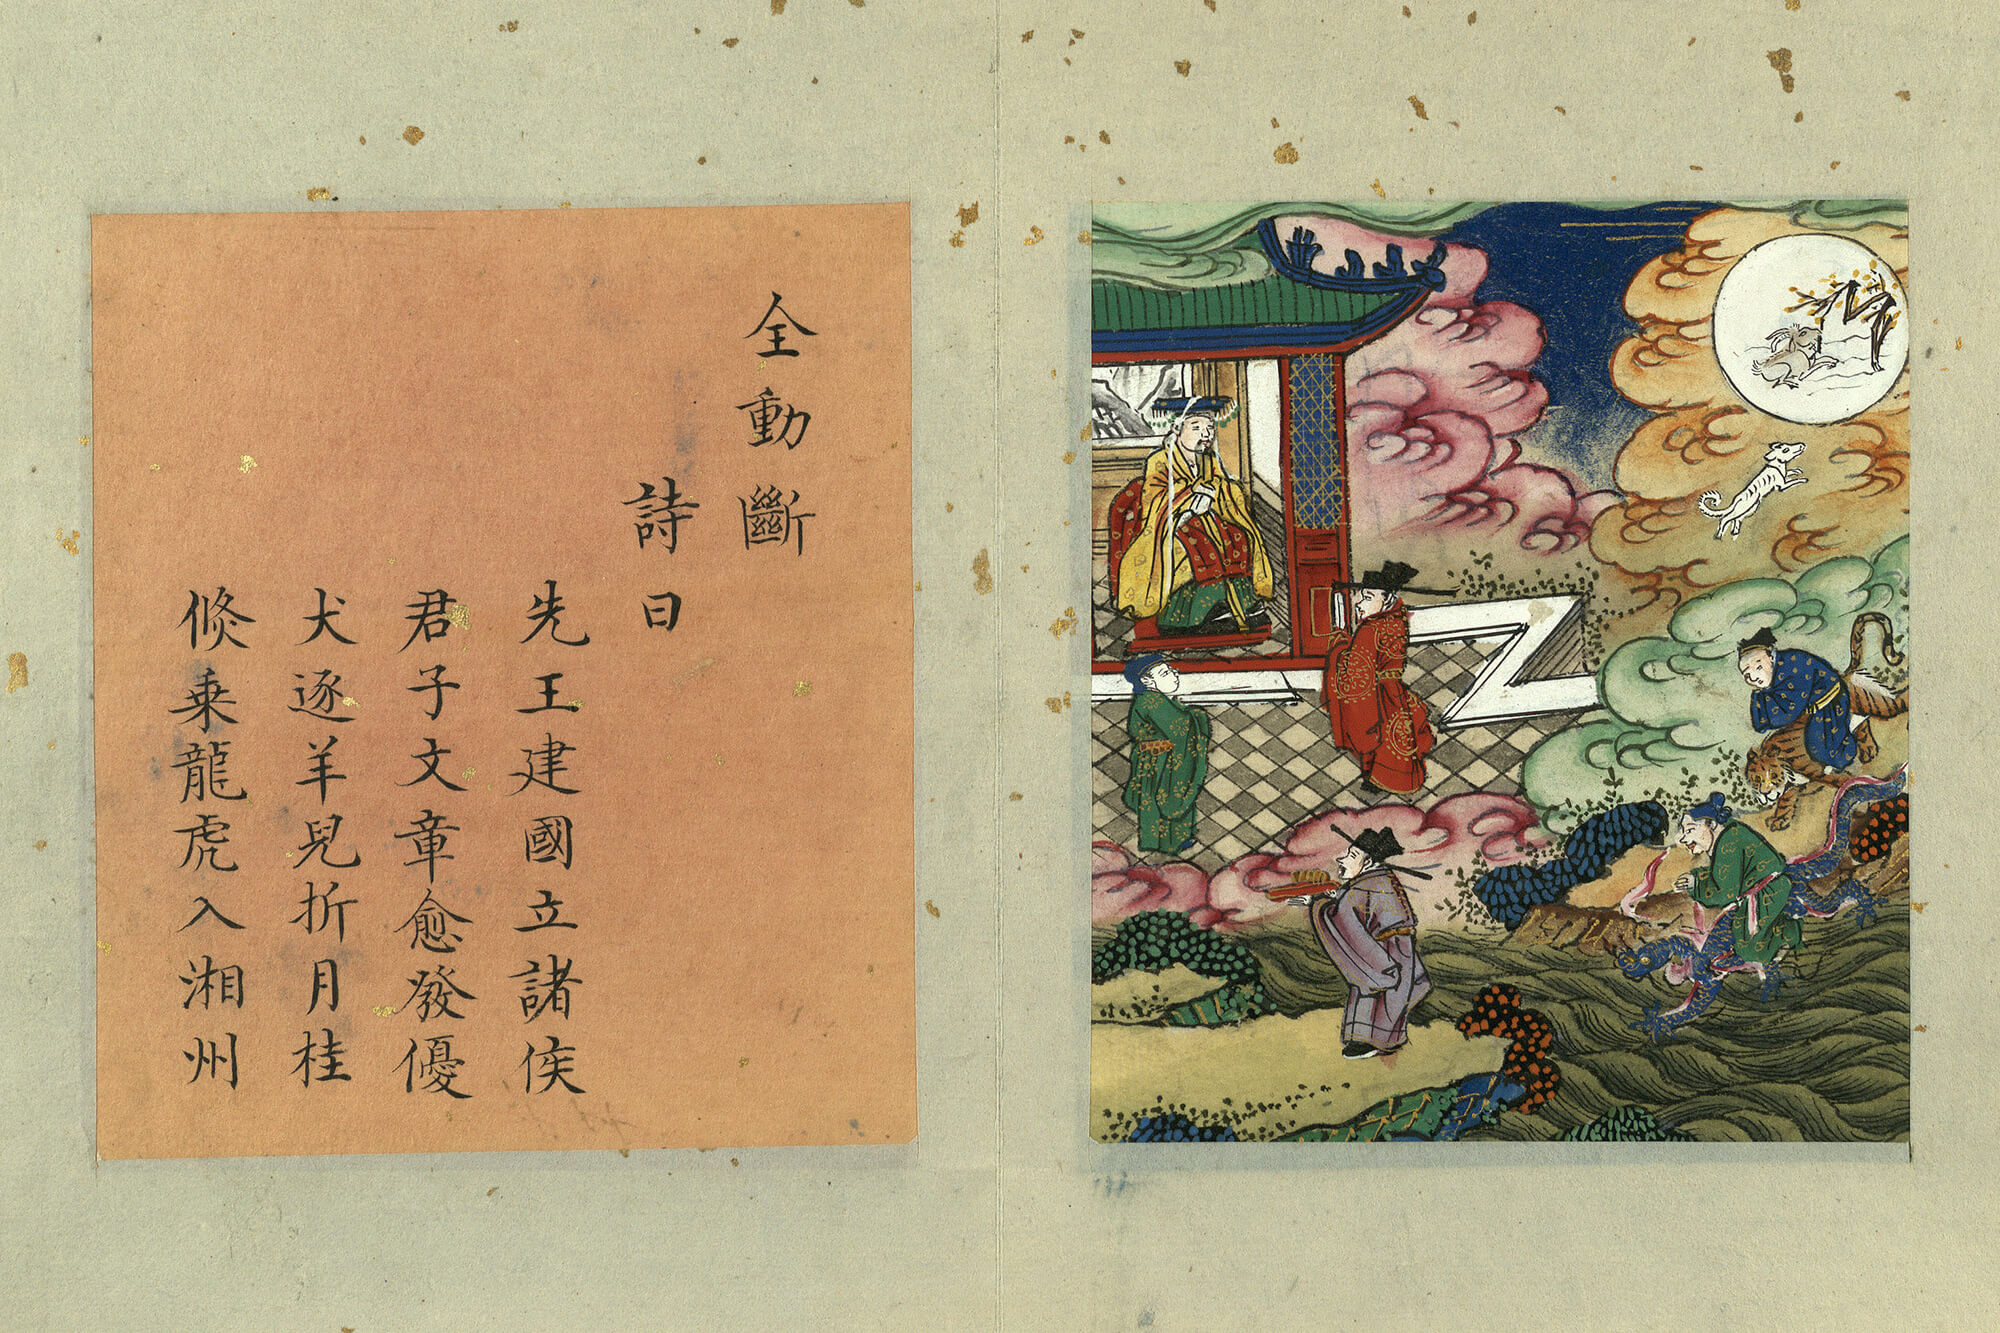 全動斷
詩曰
先王建國立諸侯
君子文章愈發優
犬逐羊兒折月桂
倏乗龍虎入湘州